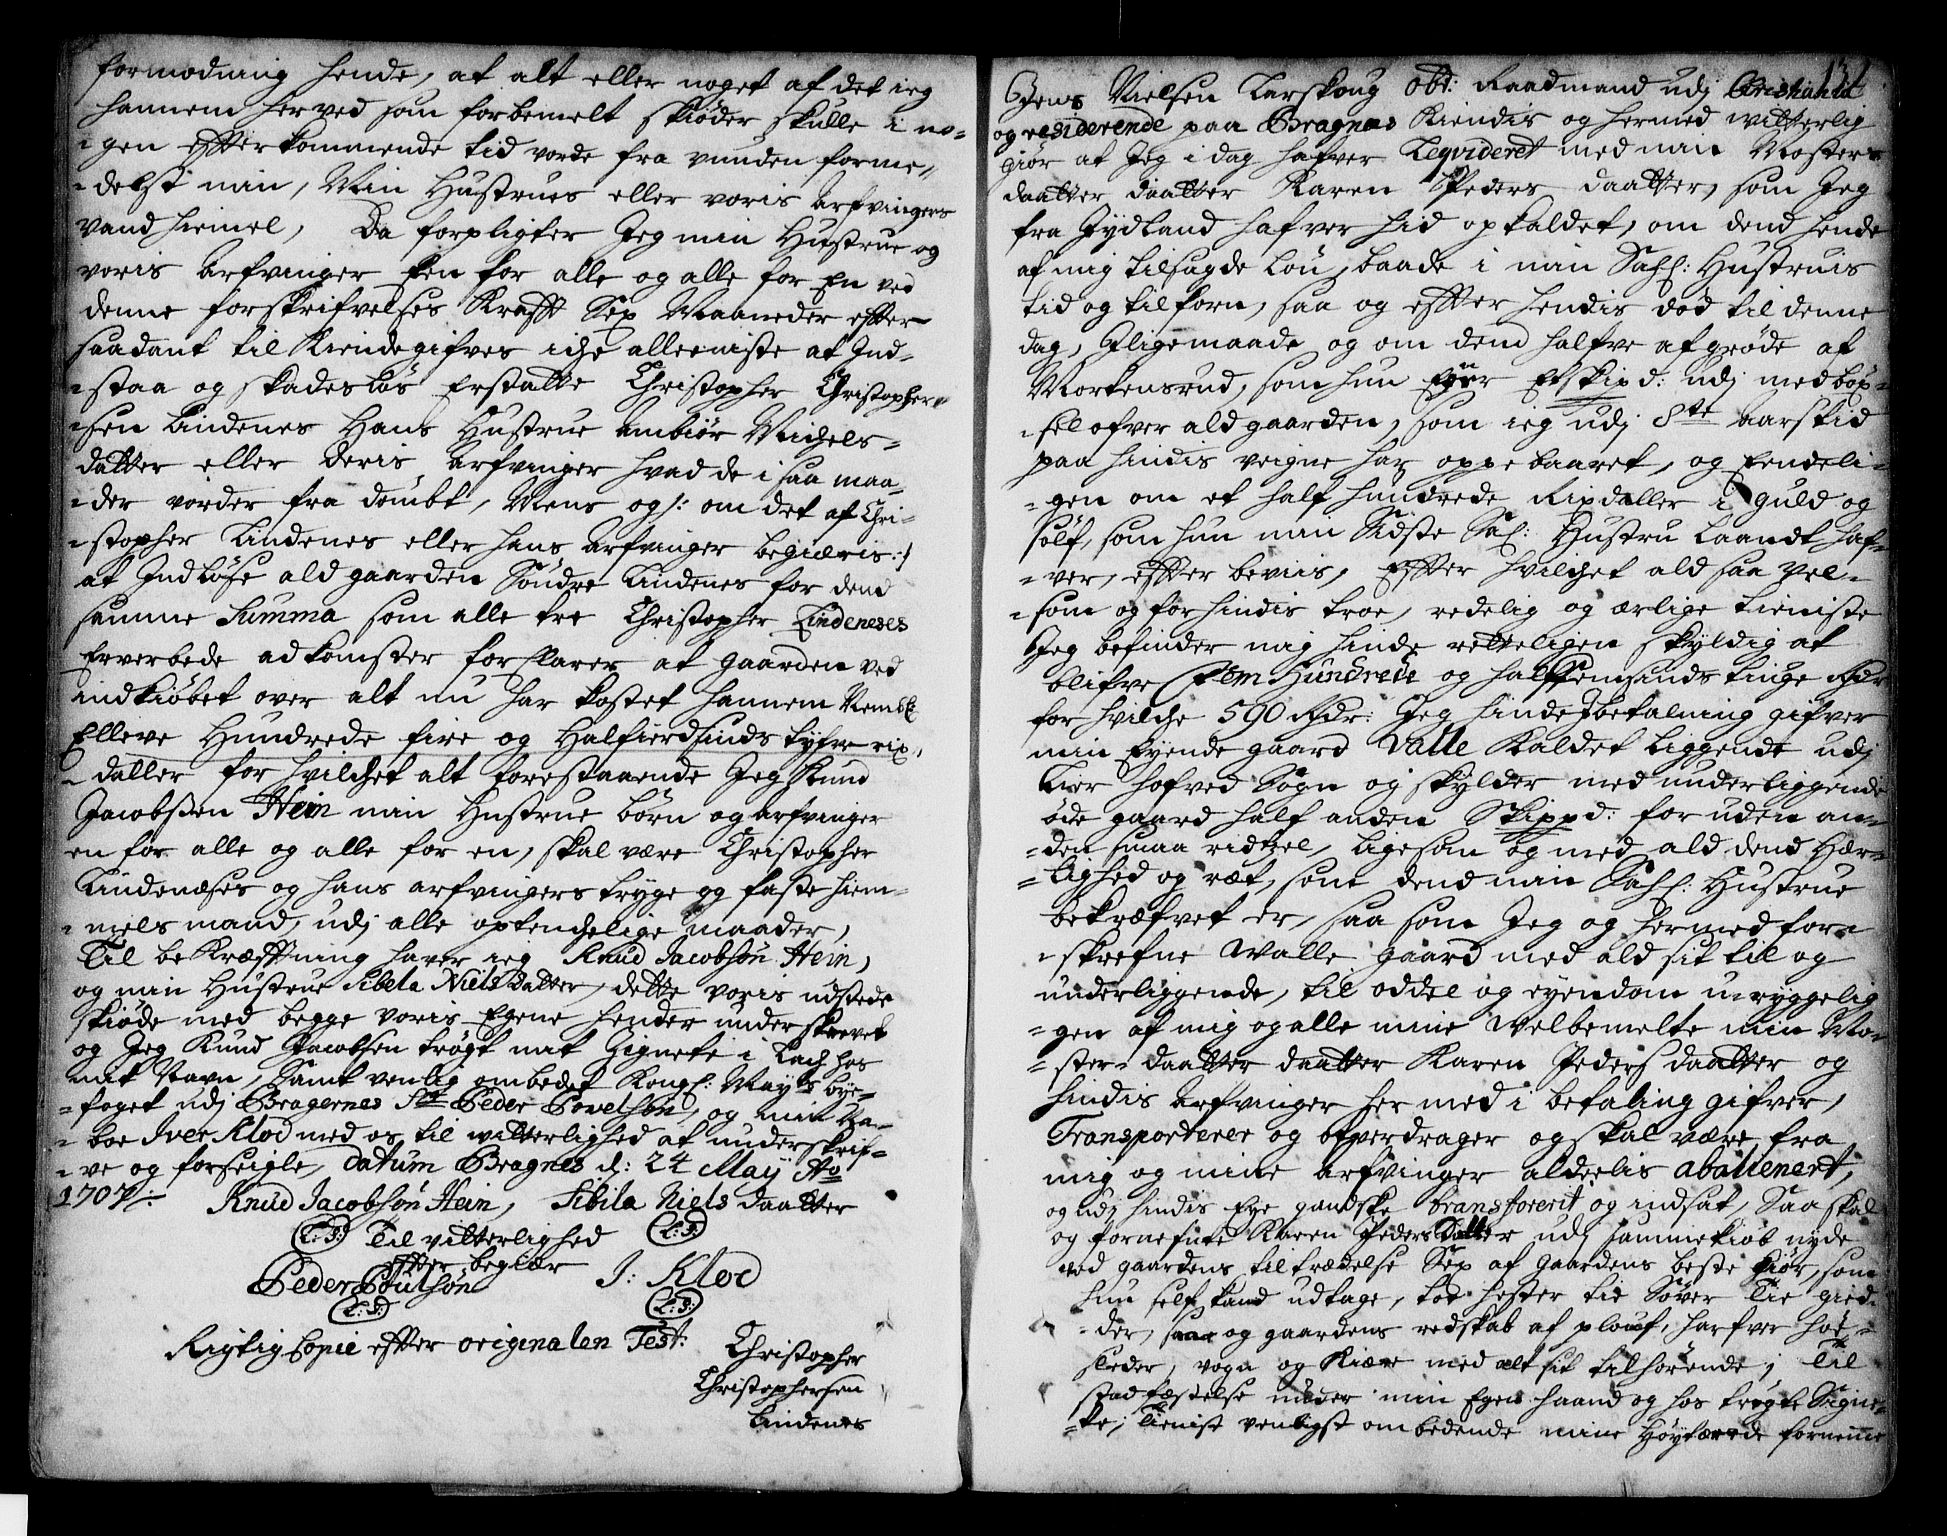 formodning hende, at alt eller noget af det ieg
hannem herved som forbemelt skiøder skulle i no-
-gen effterkommende tid vorde fra vunden forme,,
-delst min, Min Hustrues eller voris Arfvingers
Vandhiemel, Da forpligter Jeg min Hustrue og
voris Arfvinger Een for alle og alle for En ved
denne forskrifvelses Krafft Sex Maaneder effter
saadant til Kiendegifves iche alleeniste at Ind-
-staa og skadesløs Erstatte Christopher Christopher-
-sen Lindenes Hans Hustrue Anbiør Michels-
datter eller deris Arfvinger hvad de i saa maa-
-der vorder fra dømbt, Mens og /: om det af Chri-
-stopher Lindenes eller hans Arfvinger begiæris :/
at Indløse ald gaarden Søndre Lindenes for dend
samme Summa som alle tre Christopher Lindeneses
Erverbede adkomster forklarer at gaarden ved
indkiøbet over alt nu har kostet hannem Nembl:
Elleve Hundrede fire og Halfierdsinds tyfve rix,
-daller for hvilchet alt forestaaende Jeg Knud
Jacobsen Hein min Hustrue børn og arfvinger
en for alle og alle for en, skal være Christopher
Lindenæses og hans arfvingers tryge og faste hiem-
-mels mand, udj alle optenchelige maader,
Til beKræfftning haver ieg Knud Jacobsøn Hein,
og min Hustrue Sibela Niels datter, dette voris udstede
skiøde med begge voris Egene hender underskrevet
og Jeg Knud Jacobsen trögt mit Zignete i Lach hos
mit Navn, Samt venlig ombedet Kongl: Mayts bye-
-foget udj Bragernes Sr Peder Povelsøn, og min Na-
-boe Iver Klod med os til witterlighed at underskrif-
-ve og forseigle, Datum Bragnes d: 24 Maij Ao
1707 ÷ Knud Jacobsøn Hein, Sibila Niels daatter
(L:S:) Til vitterlighed (L:S:)
effter begiær
Peder Poulsøn J: Klod
(L:S:) (L:S:)
Rigtig Copie effter originalen Test:
Christopher
Christophersen
Lindenes
132
Jens Nielsen Karskoug obt: Raadmand udj Christiania
og residerende paa Bragnes Kiendis og hermed witterlig
giør at Jeg i dag hafver Leqvideret med min Moster
daatter daatter Karen Peders daatter, som Jeg
fra Jydland hafver hid opkaldet, om dend hende
af mig tilsagde Løn, baade i min Sahl: Hustruis
tid og tilforn, saa og effter hendis død til denne
dag, Jligemaade og om dend halfve afgrøde af
Mortensrud, som hun Eyer Et skipd: udj med bøx-
-sel ofver ald gaarden, som ieg udj 8te Aarstid
paa hindis veigne har oppebaaret, og Eendeli-
-gen om et half hundrede Rixdaller i guld og
sølf, som hun min Sidste Sal: Hustru Laandt haf-
-ver, effter beviis, Effter hvilchet ald saa vel-
-som og for hindis troe, redelig og ærlige tieniste
Jeg befinder mig hinde retteligen skyldig at
blifve Fem Hundrede og halffemsinds tiuge Rdr
for hvilche 590 Rdr: Jeg hinde J betalning gifver
min Eyende gaard Valle Kaldet Liggende udj
Lier hofved Sogn og skylder med underliggende
øde gaard half anden Skippd: for uden an-
-den smaa ridtzel, Ligesom og med ald dend Hær-
-lighed og ræt, som dend min Sahl: Hustrue
bekræfvet er, saa som Jeg og hermed for-
-skrefne Walle gaard med ald sit til og
underliggende, til oddel og eyendom uryggelig
-gen af mig og alle mine Velbemelte min Mo-
-ster daatter daatter Karen Peders daatter og
hindis Arfvinger her med i betaling gifver,
Transporterer og ofverdrager og skal være fra
mig og mine Arfvinger alderlis abalienert,
og udj hindis Eye gandske transforerit og indsat, Saa skal
og fornefnte Karen Peders Datter udj samme kiøb nyde
ved gaardens tiltrædelse Sex af Gaardens beste Kiør, som
hun self kand udtage, toe hester tie Søver Tie gied-
-der, saa og gaardens redskab af plouf, harfver høe-
sleder, vogn og Kiære med alt sit tilhørende; Til
stadfæstelse under min Egen haand og hos trögte Signe-
-te; Tienist venligst ombedende mine Høytærede fornemme